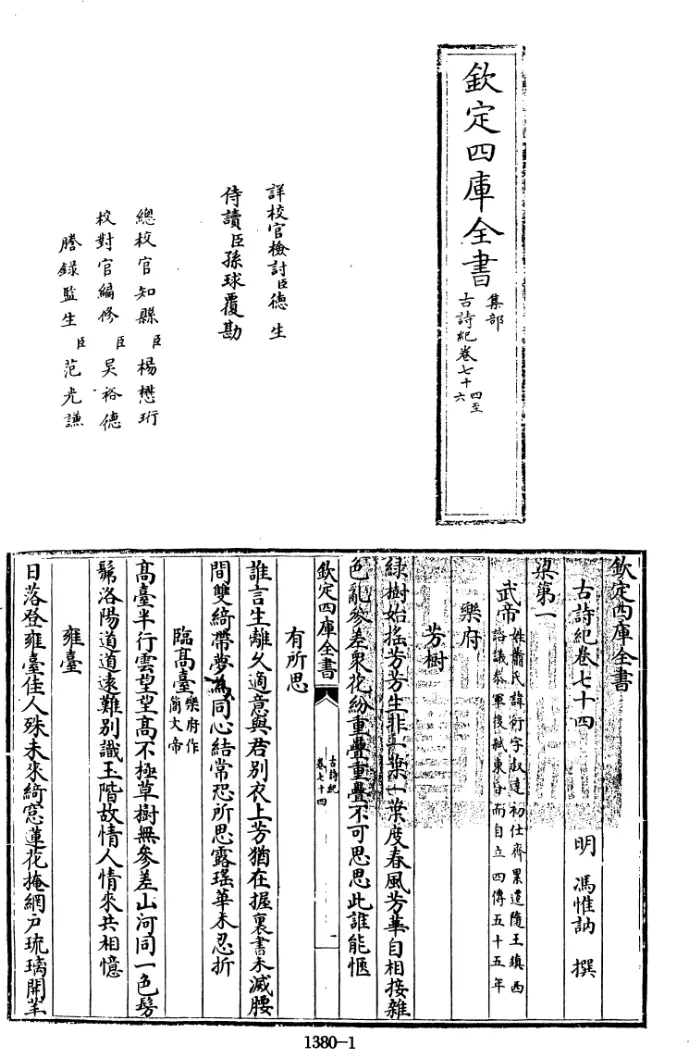 欽定四庫全書
集部
古詩紀卷七十四至
六
詳校官檢討臣德生
侍讀臣孫球覆勘
總校官知縣臣楊懋珩
校對官編修臣吳裕德
謄錄監生臣范光謙
欽定四庫全書
古詩紀卷七十四
明 馮惟訥 撰
梁第一
武帝
姓蕭氏諱衍字叔達初仕齊累遷隨王鎮西
諮議參軍後弒東昏而自立四傳五十五年
樂府
芳樹
綠樹始搖芳芳生非一葉一葉度春風芳華自相接雜
色亂參差衆花紛重疊重疊不可思思此誰能愜
欽定四庫全書
古詩紀
卷七十四
一
有所思
誰言生離久適意與君別衣上芳猶在握裏書未滅腰
間雙綺帶夢為同心結常恐所思露瑤華未忍折
臨高臺
樂府作
簡文帝
高臺半行雲望望高不極草樹無參差山河同一色髣
髴洛陽道道遠難別識玉階故情人情來共相憶
雍臺
日落登雍臺佳人殊未來綺窓蓮花掩網戶琉璃開羊
1380-1